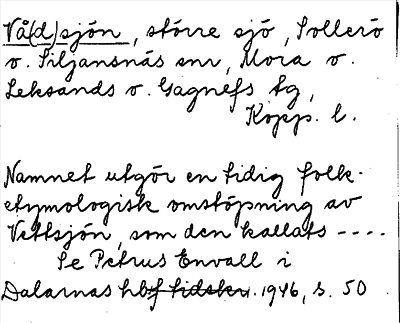 Vå(d)sjön, större sjö, Sollerö
o. Siljansnäs snr, Mora o.
Leksands o. Gagnefs tg,
Kopp. l.
Namnet utgör en tidig folk-
etymologisk omstöpning av
Vettsjön, som den kallats ----
Se Petrus Envall i
Dalarnas hbf tidskr. 1946, s. 50